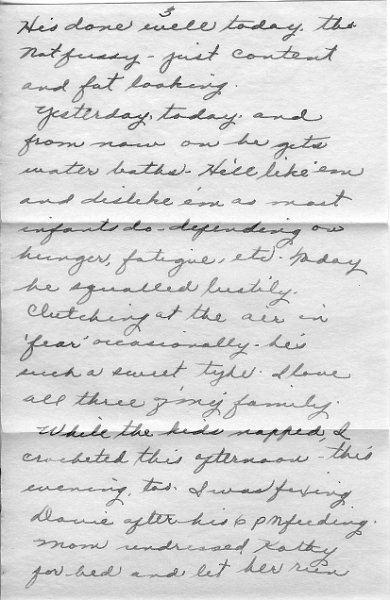 3
His done well today. tho
Not fussy - just content
and fat looking.
Yesterday, today, and
from now on he gets
water baths - He'll like 'em
and dislike 'em as most
infants do - depending on
hunger, fatigue, etc. Today
he squalled lustily.
Clutching at the air in
'fear' occasionally - he's
such a sweet tyke. I love
all three of my family.
While the kids napped I
crocheted this afternoon - this
evening, too. I was fixing
Davie after his 6 PM feeding.
Mom undressed Kathy
for bed and let her run